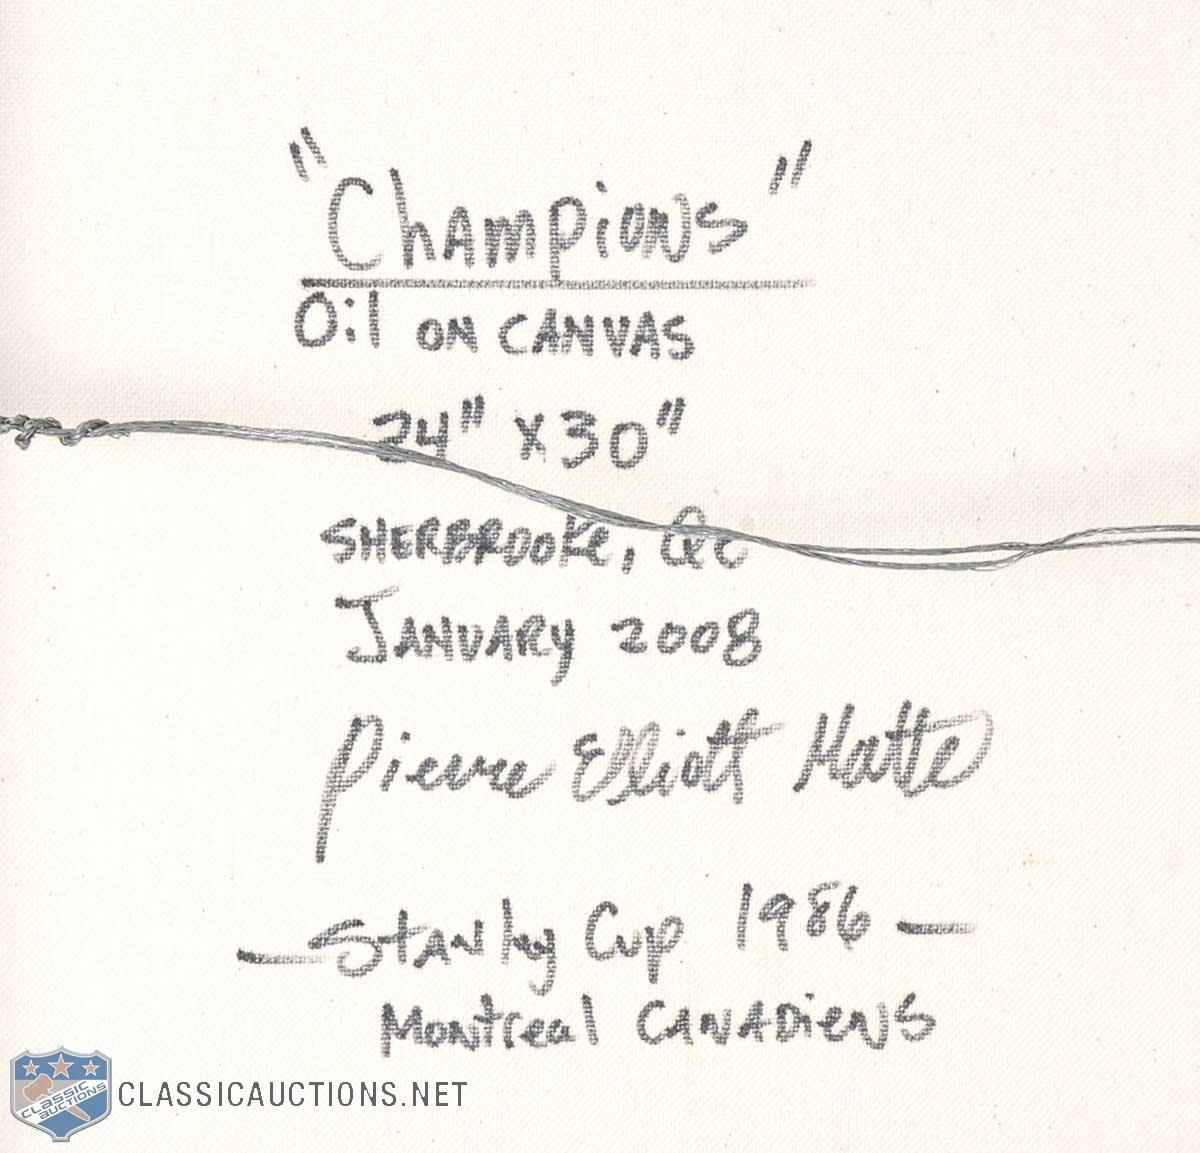 "Champions"
Oil on CANVAS
24" x 30"
SHERBROOKE, Qc
JANUARY 2008
Pierre Elliott Matte
— Stanley Cup 1986 —
Montreal CANADIENS
CLASSIC AUCTIONS
CLASSICAUCTIONS.NET